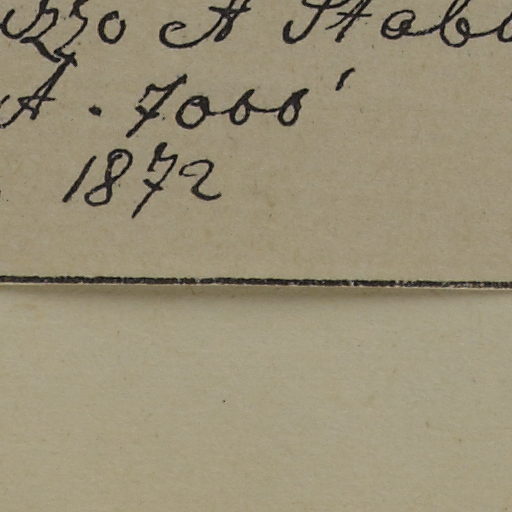 A Stab
A. 7000'
1872